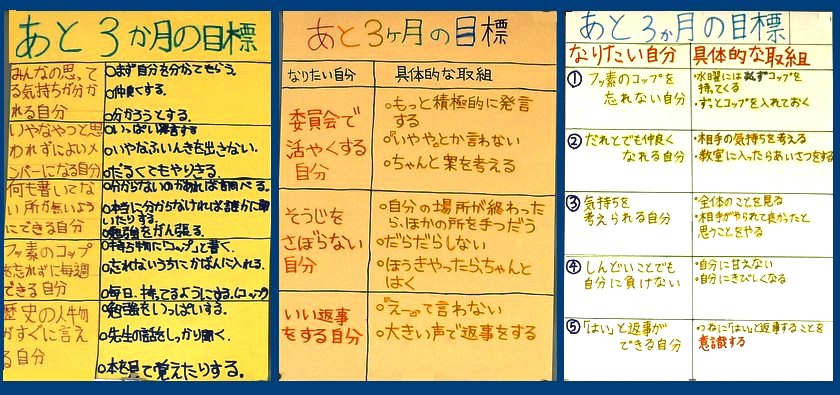 あと3か月の目標
みんなの思って
る気持ちが分か
れる自分
○まず自分を分かてもらう。
○仲良くする。
○分かろうとする。
いやなやつと思
われずによいメ
ンバーになる自分
○いっぱい発言する
○いやなふいんきを出さない。
○だるくてもやりきる。
何も書いてな
い所が無いよう
にできる自分
○分からないのがあれば調べる。
○本当に分からなければ誰かに聞
いたりする。
○勉強をがん張る。
フッ素のコップ
を忘れずに毎週
できる自分
○持ち物に「コップ」と書く。
○忘れないうちにかばんに入れる。
○毎日、持ってるようにする。(コップ)
歴史の人物
がすぐに言え
る自分
○勉強をいっぱいする。
○先生の話をしっかり聞く。
○本を見て覚えたりする。
あと3ヶ月の目標
なりたい自分
具体的な取組
委員会で
活やくする
自分
○もっと積極的に発言
する
○『いやや』とか言わない
○ちゃんと案を考える
そうじを
さぼらない
自分
○自分の場所が終わった
ら、ほかの所を手つだう
○だらだらしない
○ほうきやったら、ちゃんと
はく
いい返事
をする自分
○『えー』って言わない
○大きい声で返事をする
あと3ヵ月の目標
なりたい自分
具体的な取組
①フッ素のコップを
忘れない自分
・水曜には必ずコップを
持てくる
・ずっとコップを入れておく
②だれとでも仲良く
なれる自分
・相手の気持ちを考える
・教室に入ったらあいさつをする
③気持ちを
考えられる自分
・全体のことを見る
・相手がやられて良かったと
思うことをやる
④しんどいことでも
自分に負けない
・自分に甘えない
・自分にきびしくなる
⑤「はい」と返事が
できる自分
・つねに「はい」と返事することを
意識する